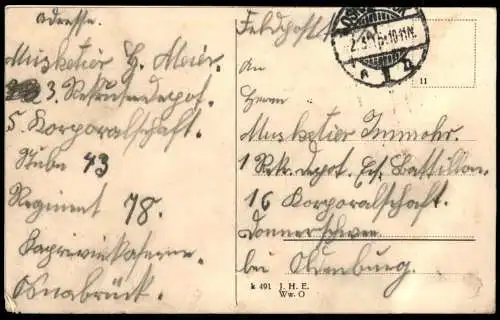 Adresse.
Musketier H. Meier.
3. Rekrutendepot.
5. Korporalschaft.
Stube 43
Regiment 78.
Kaprivikaserne.
Osnabrück.
Feldpost
An
Herrn
Musketier Immohr.
1 Rek. depot. Ers. Battillon.
16 Korporalschaft.
Donnerschwee
bei Oldenburg.
11
k 491 J. H. E.
Ww. O